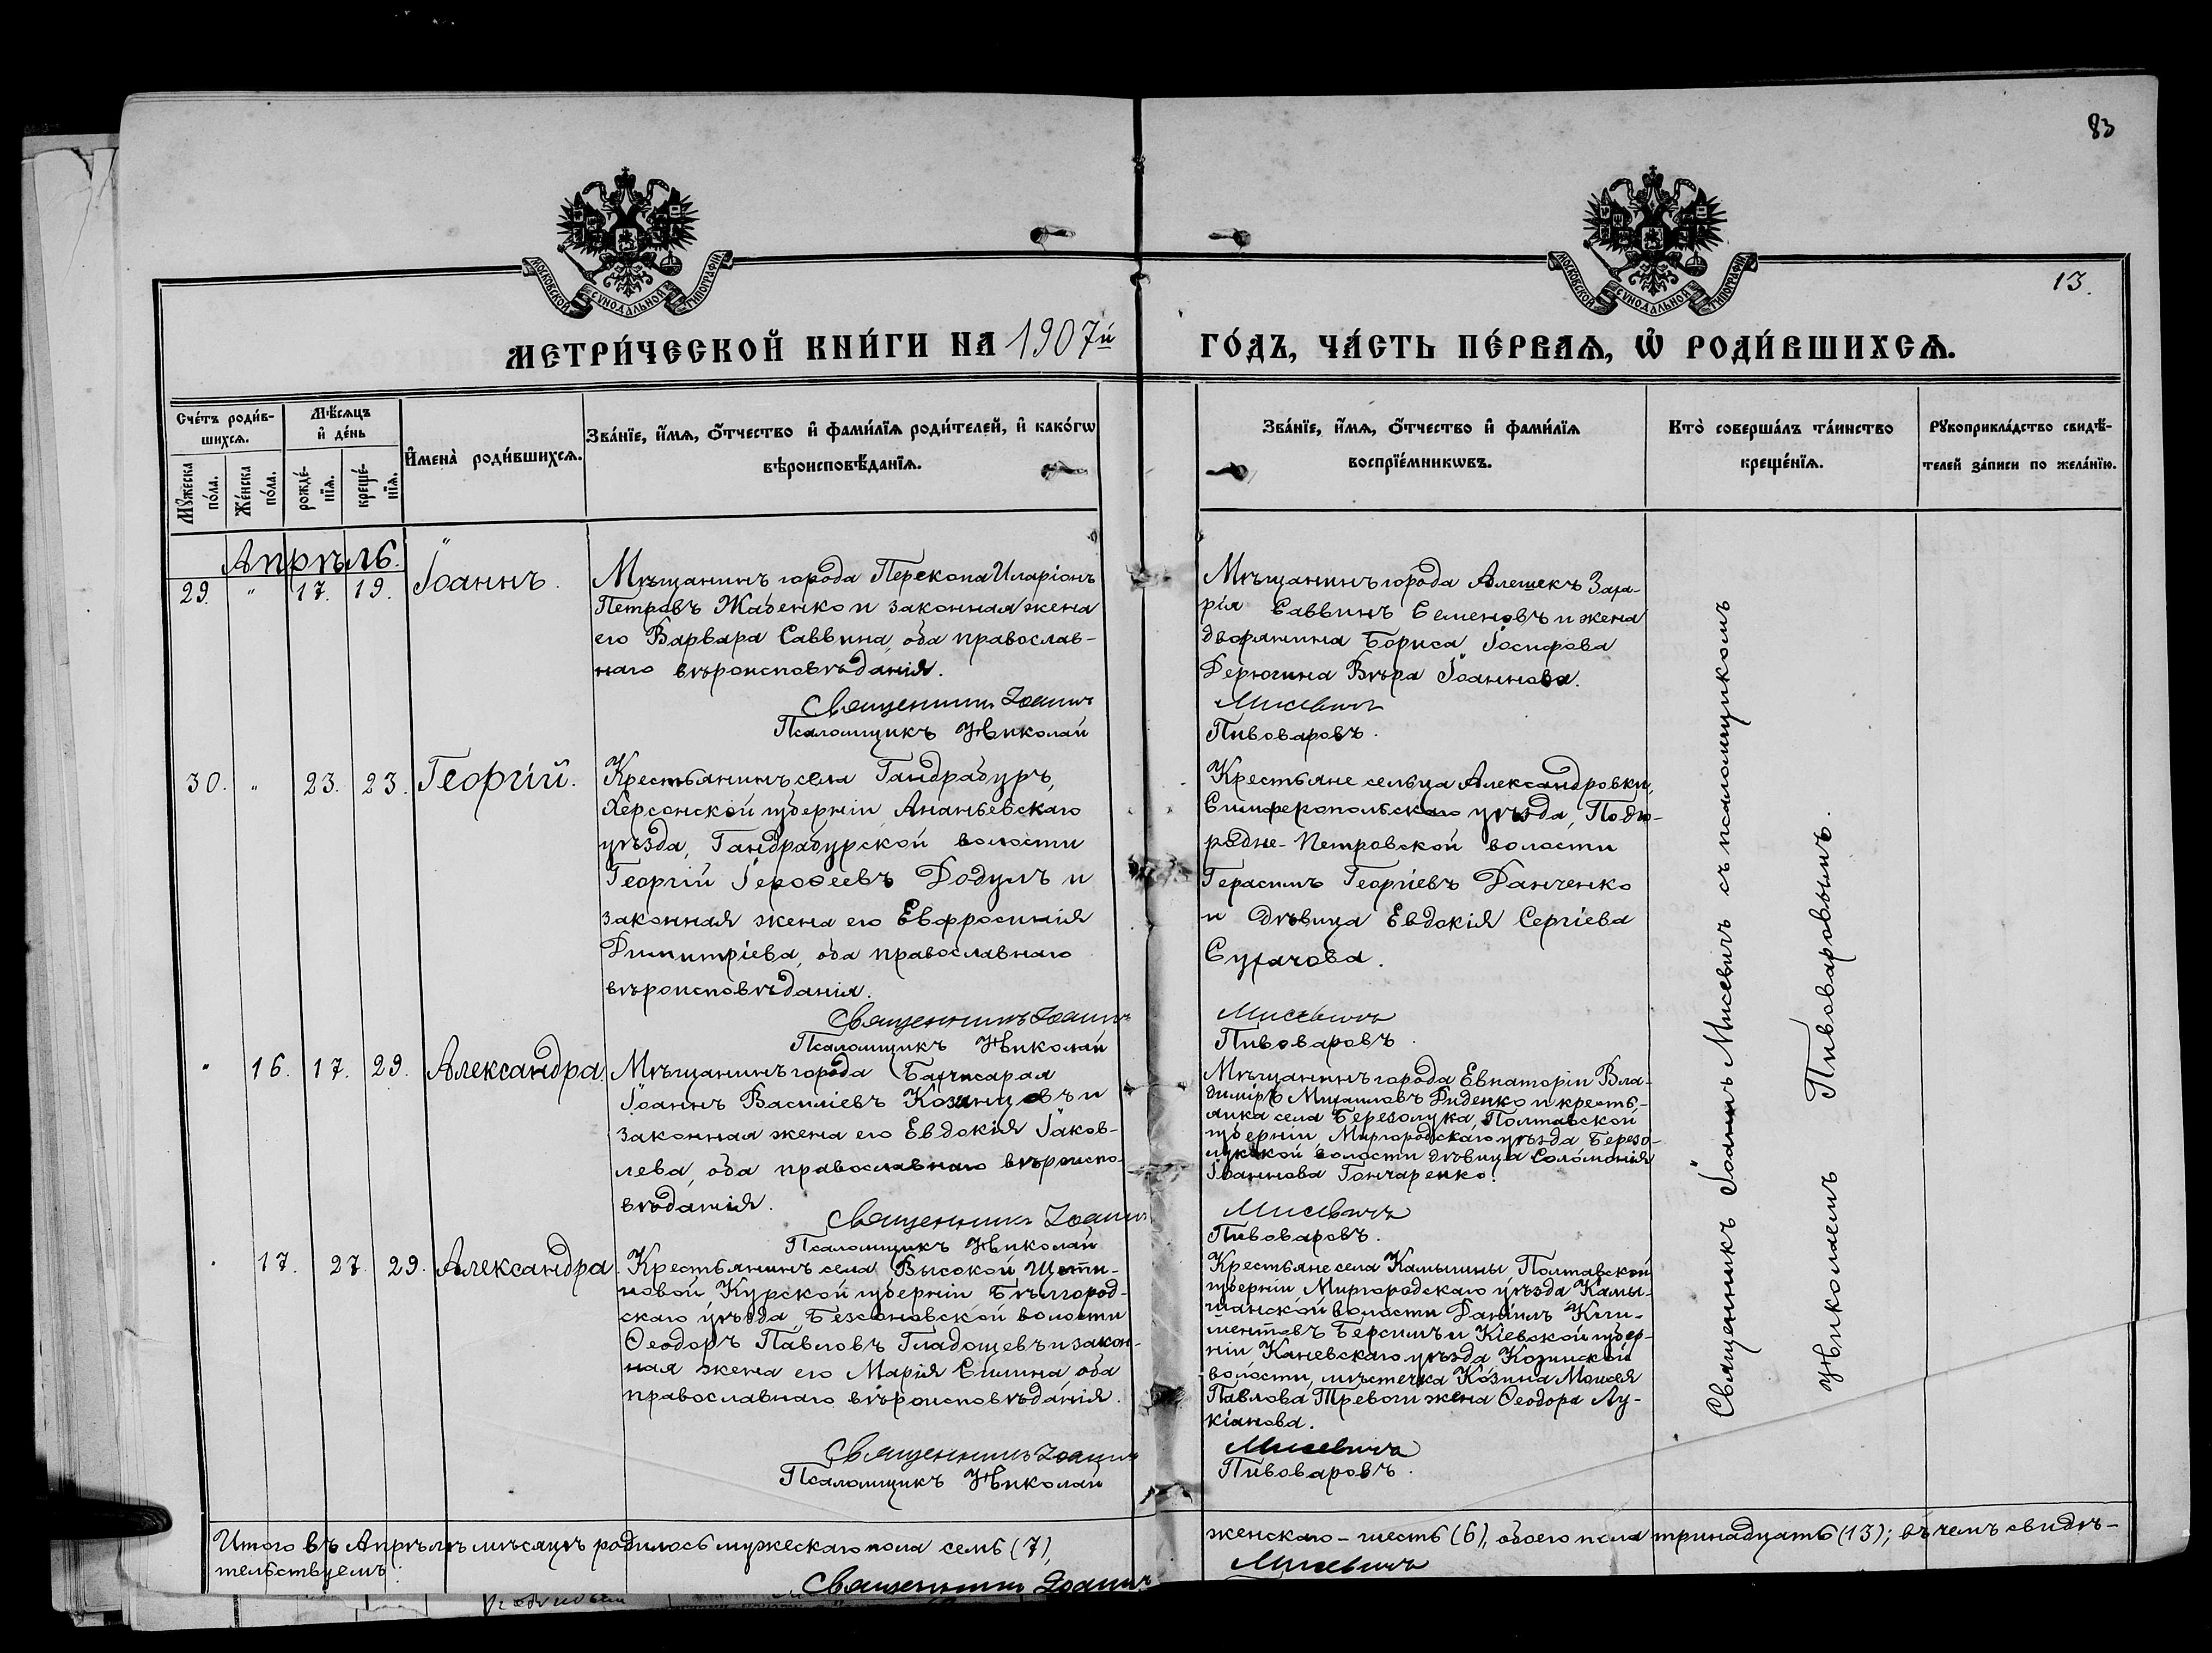 83
МОСКОВСКОЙ СУНОДАЛЬНОЙ ТИПОГРАФІИ
МОСКОВСКОЙ СУНОДАЛЬНОЙ ТИПОГРАФІИ
13.
МЕТРИ́ЧЕСКОЙ КНИ́ГИ НА 1907й ГО́ДЪ, ЧА́СТЬ ПЕ́РВАѦ, Ѡ РОДИ́ВШИХСѦ.
Сче́тъ роди́в-
шихсѧ.
Мѣ́сѧцъ
и де́нь
Мꙋ́жеска
по́ла.
Же́нска
по́ла.
рожде́-
нїѧ.
креще́-
нїѧ.
Имена̀ роди́вшихсѧ.
Зва́нїе, и́мѧ, о́тчество и фами́лїѧ роди́телей, и како́гѡ
вѣроисповѣ́данїѧ.
Зва́нїе, и́мѧ, о́тчество и фами́лїѧ
воспрїе́мникѡвъ.
Кто̀ соверша́лъ та́инство
креще́нїѧ.
Рꙋкоприкла́дство свидѣ́-
телей за́писи по жела́нїю.
Апрѣль.
29. " 17. 19. Іоаннъ.
Мѣщанинъ города Перекопа Иларіонъ
Петровъ Жабенко и законная жена
его Варвара Саввина, оба православ-
наго вѣроисповѣданія.
Священникъ Іоаннъ
Псаломщикъ Николай
Мѣщанинъ города Алешекъ Заха-
рія Саввинъ Семеновъ и жена
дворянина Бориса Іосифова
Дерюгина Вѣра Іоаннова.
Мисевичъ
Пивоваровъ.
30. " 23. 23. Георгій.
Крестьянинъ села Гандрабуръ,
Херсонской губерніи Ананьевскаго
уѣзда, Гандрабурской волости
Георгій Іерофеевъ Додулъ и
законная жена его Евфросинія
Димитріева, оба православнаго
вѣроисповѣданія.
Священникъ Іоаннъ
Псаломщикъ Николай
Крестьяне сельца Александровки,
Симферопольскаго уѣзда, Подго-
родне-Петровской волости
Герасимъ Георгіевъ Данченко
и дѣвица Евдокія Сергіева
Сухачова.
Мисевичъ
Пивоваровъ.
" 16. 17. 29. Александра.
Мѣщанинъ города Бахчисарая
Іоаннъ Василіевъ Козинцовъ и
законная жена его Евдокія Іаков-
лева, оба православнаго вѣроиспо-
вѣданія.
Священникъ Іоаннъ
Псаломщикъ Николай
Мѣщанинъ города Евпаторіи Вла-
диміръ Михаиловъ Диденко и кресть-
янка села Березолука, Полтавской
губерніи, Миргородскаго уѣзда Березо-
лукской волости дѣвица Соломонія
Іоаннова Гончаренко.
Мисевичъ
Пивоваровъ.
" 17. 27. 29. Александра
Крестьянинъ села Высокой Щети-
новой Курской губерніи Бѣлгород-
скаго уѣзда, Безсоновской волости
Ѳеодоръ Павловъ Гладощевъ и закон-
ная жена его Марія Симина, оба
православнаго вѣроисповѣданія.
Священникъ Іоаннъ
Псаломщикъ Николай
Крестьяне села Камышны Полтавской
губерніи Миргородскаго уѣзда Камы-
шанской волости Даніилъ Кли-
ментовъ Берсимъ и Кіевской губер-
ніи Каневскаго уѣзда Козинской
волости, мѣстечка Козина Моисея
Павлова Тревоги жена Ѳеодора Лу-
кіанова.
Мисевичъ
Пивоваровъ.
Священникъ Іоаннъ Мисевичъ съ псаломщикомъ
Николаемъ Пивоваровымъ.
Итого въ Апрѣлѣ мѣсяцѣ родилось мужескаго пола семь (7), женскаго - шесть (6), обоего пола тринадцать (13); въ чемъ свидѣ-
тельствуемъ:
Священникъ Іоаннъ Мисевичъ